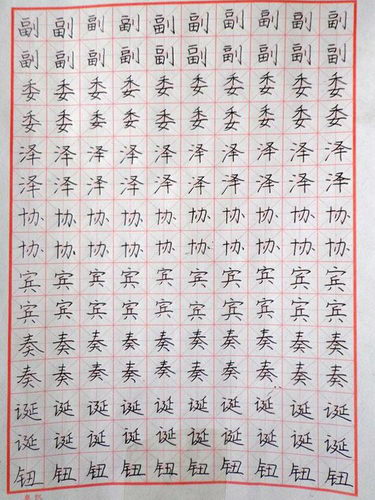 副副副副副副副副副副
副副副副副副副副副副
委委委委委委委委委委
委委委委委委委委委委
泽泽泽泽泽泽泽泽泽泽
泽泽泽泽泽泽泽泽泽泽
协协协协协协协协协协
协协协协协协协协协协
宾宾宾宾宾宾宾宾宾宾
宾宾宾宾宾宾宾宾宾宾
奏奏奏奏奏奏奏奏奏奏
奏奏奏奏奏奏奏奏奏奏
诞诞诞诞诞诞诞诞诞诞
诞诞诞诞诞诞诞诞诞诞
钮钮钮钮钮钮钮钮钮钮